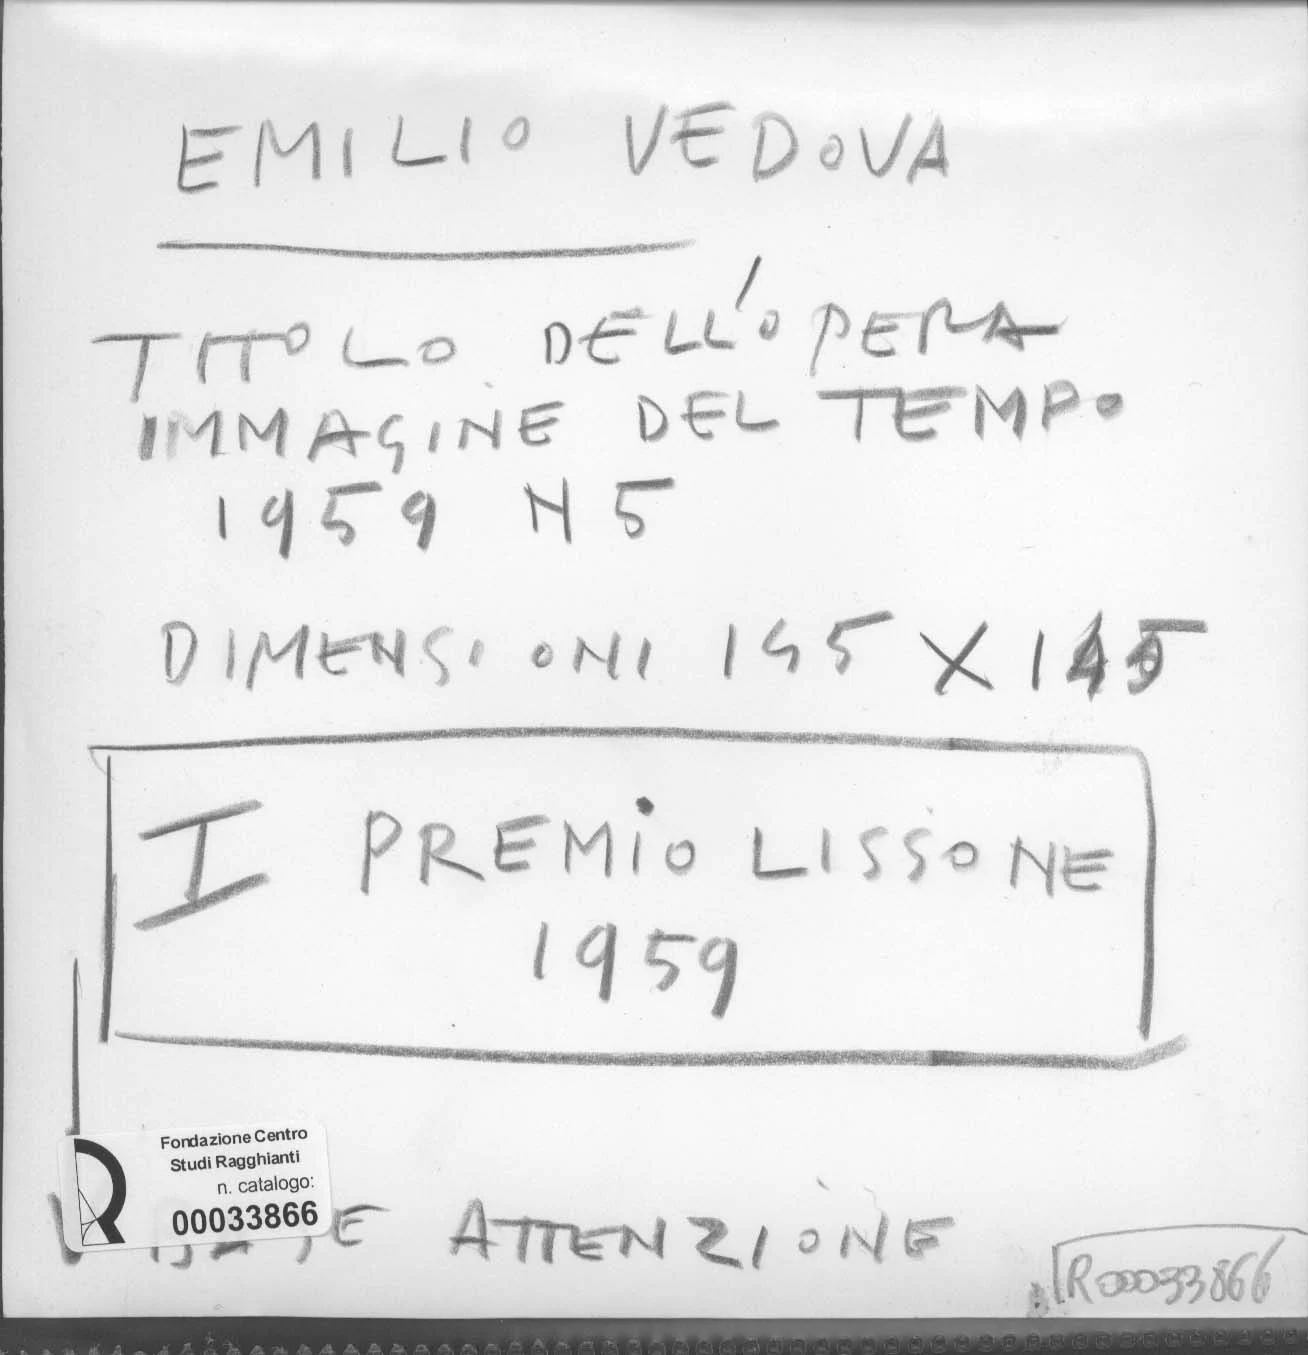 EMILIO VEDOVA
TITOLO DELL'OPERA
IMMAGINE DEL TEMPO
1959 N 5
DIMENSIONI 145 X 145
I PREMIO LISSONE
1959
Fondazione Centro
Studi Ragghianti
n. catalogo:
00033866
ATTENZIONE
R00033866